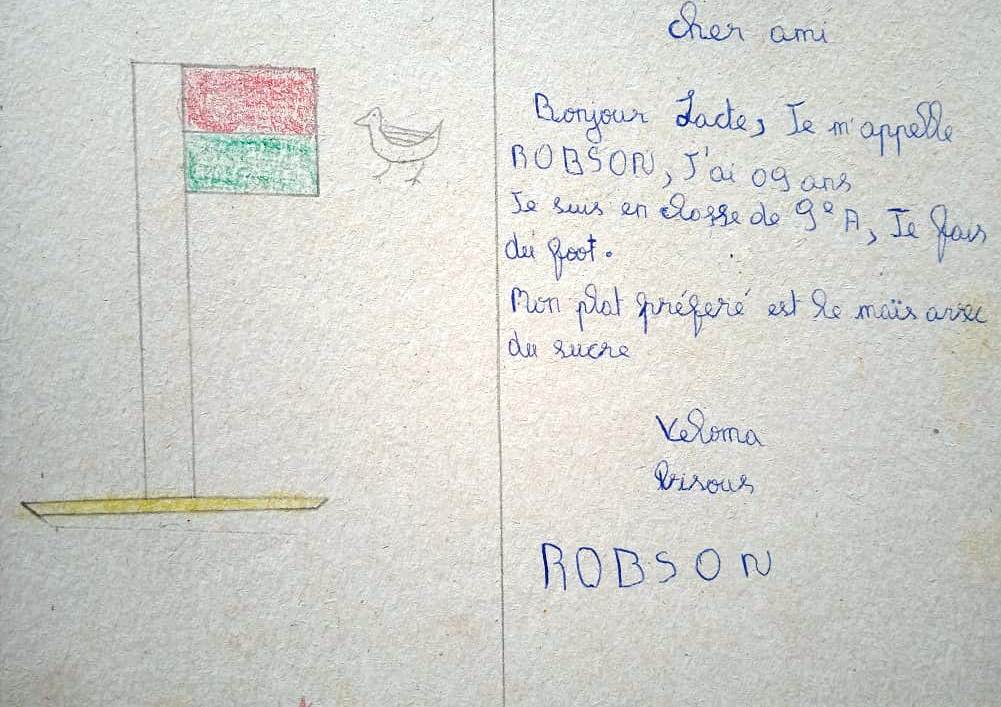 cher ami
Bonjour Lacte, Je m'appelle
ROBSON, J'ai 09 ans
Je suis en classe de 9e A, Je fais
du foot.
Mon plat préferé est le maïs avec
du sucre
Veloma
bisous
ROBSON